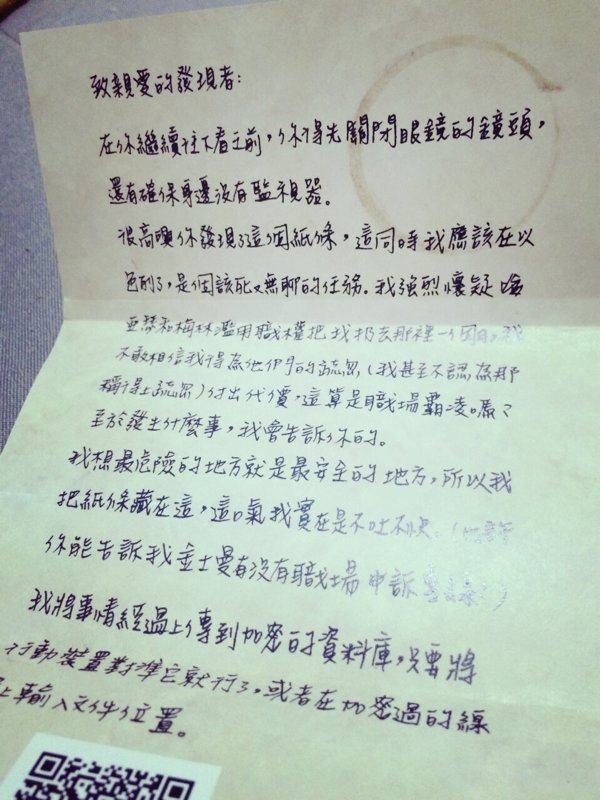 致親愛的發現者：
在你繼續往下看之前，你得先關閉眼鏡的鏡頭，
還有確保身邊沒有監視器。
很高興你發現了這個紙條，這同時我應該在以
色列了，是個該死又無聊的任務。我強烈懷疑哈
亞瑟和梅林濫用職權把我扔去那裡一個月，我
不敢相信我得為他們的疏忽（我甚至不認為那
稱得上疏忽）付出代價，這算是職場霸凌嗎？
至於發生什麼事，我會告訴你的。
我想最危險的地方就是最安全的地方，所以我
把紙條藏在這，這口氣我實在是不吐不快。
你能告訴我金士曼有沒有職場申訴
我將事情經過上傳到加密的資料庫，只要將
行動裝置對準它就行了，或者在加密過的線
上輸入文件位置。